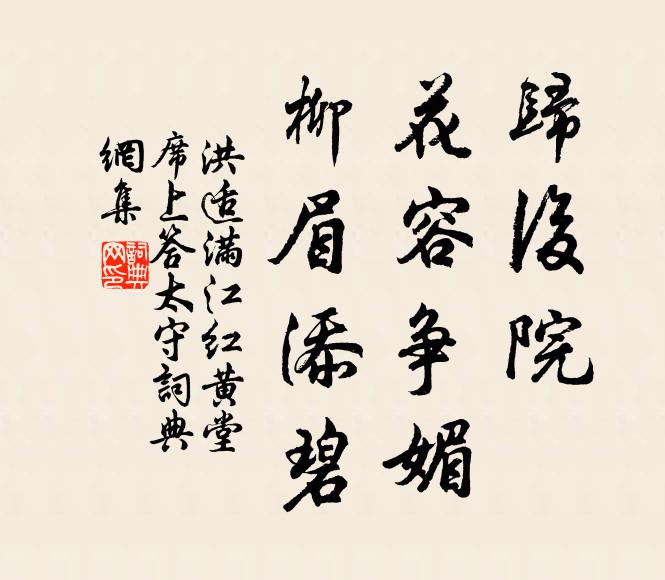 歸後院
花容争媚
柳眉添碧
洪适满江红黄堂
席上答太守詞典
網集
詞典網印